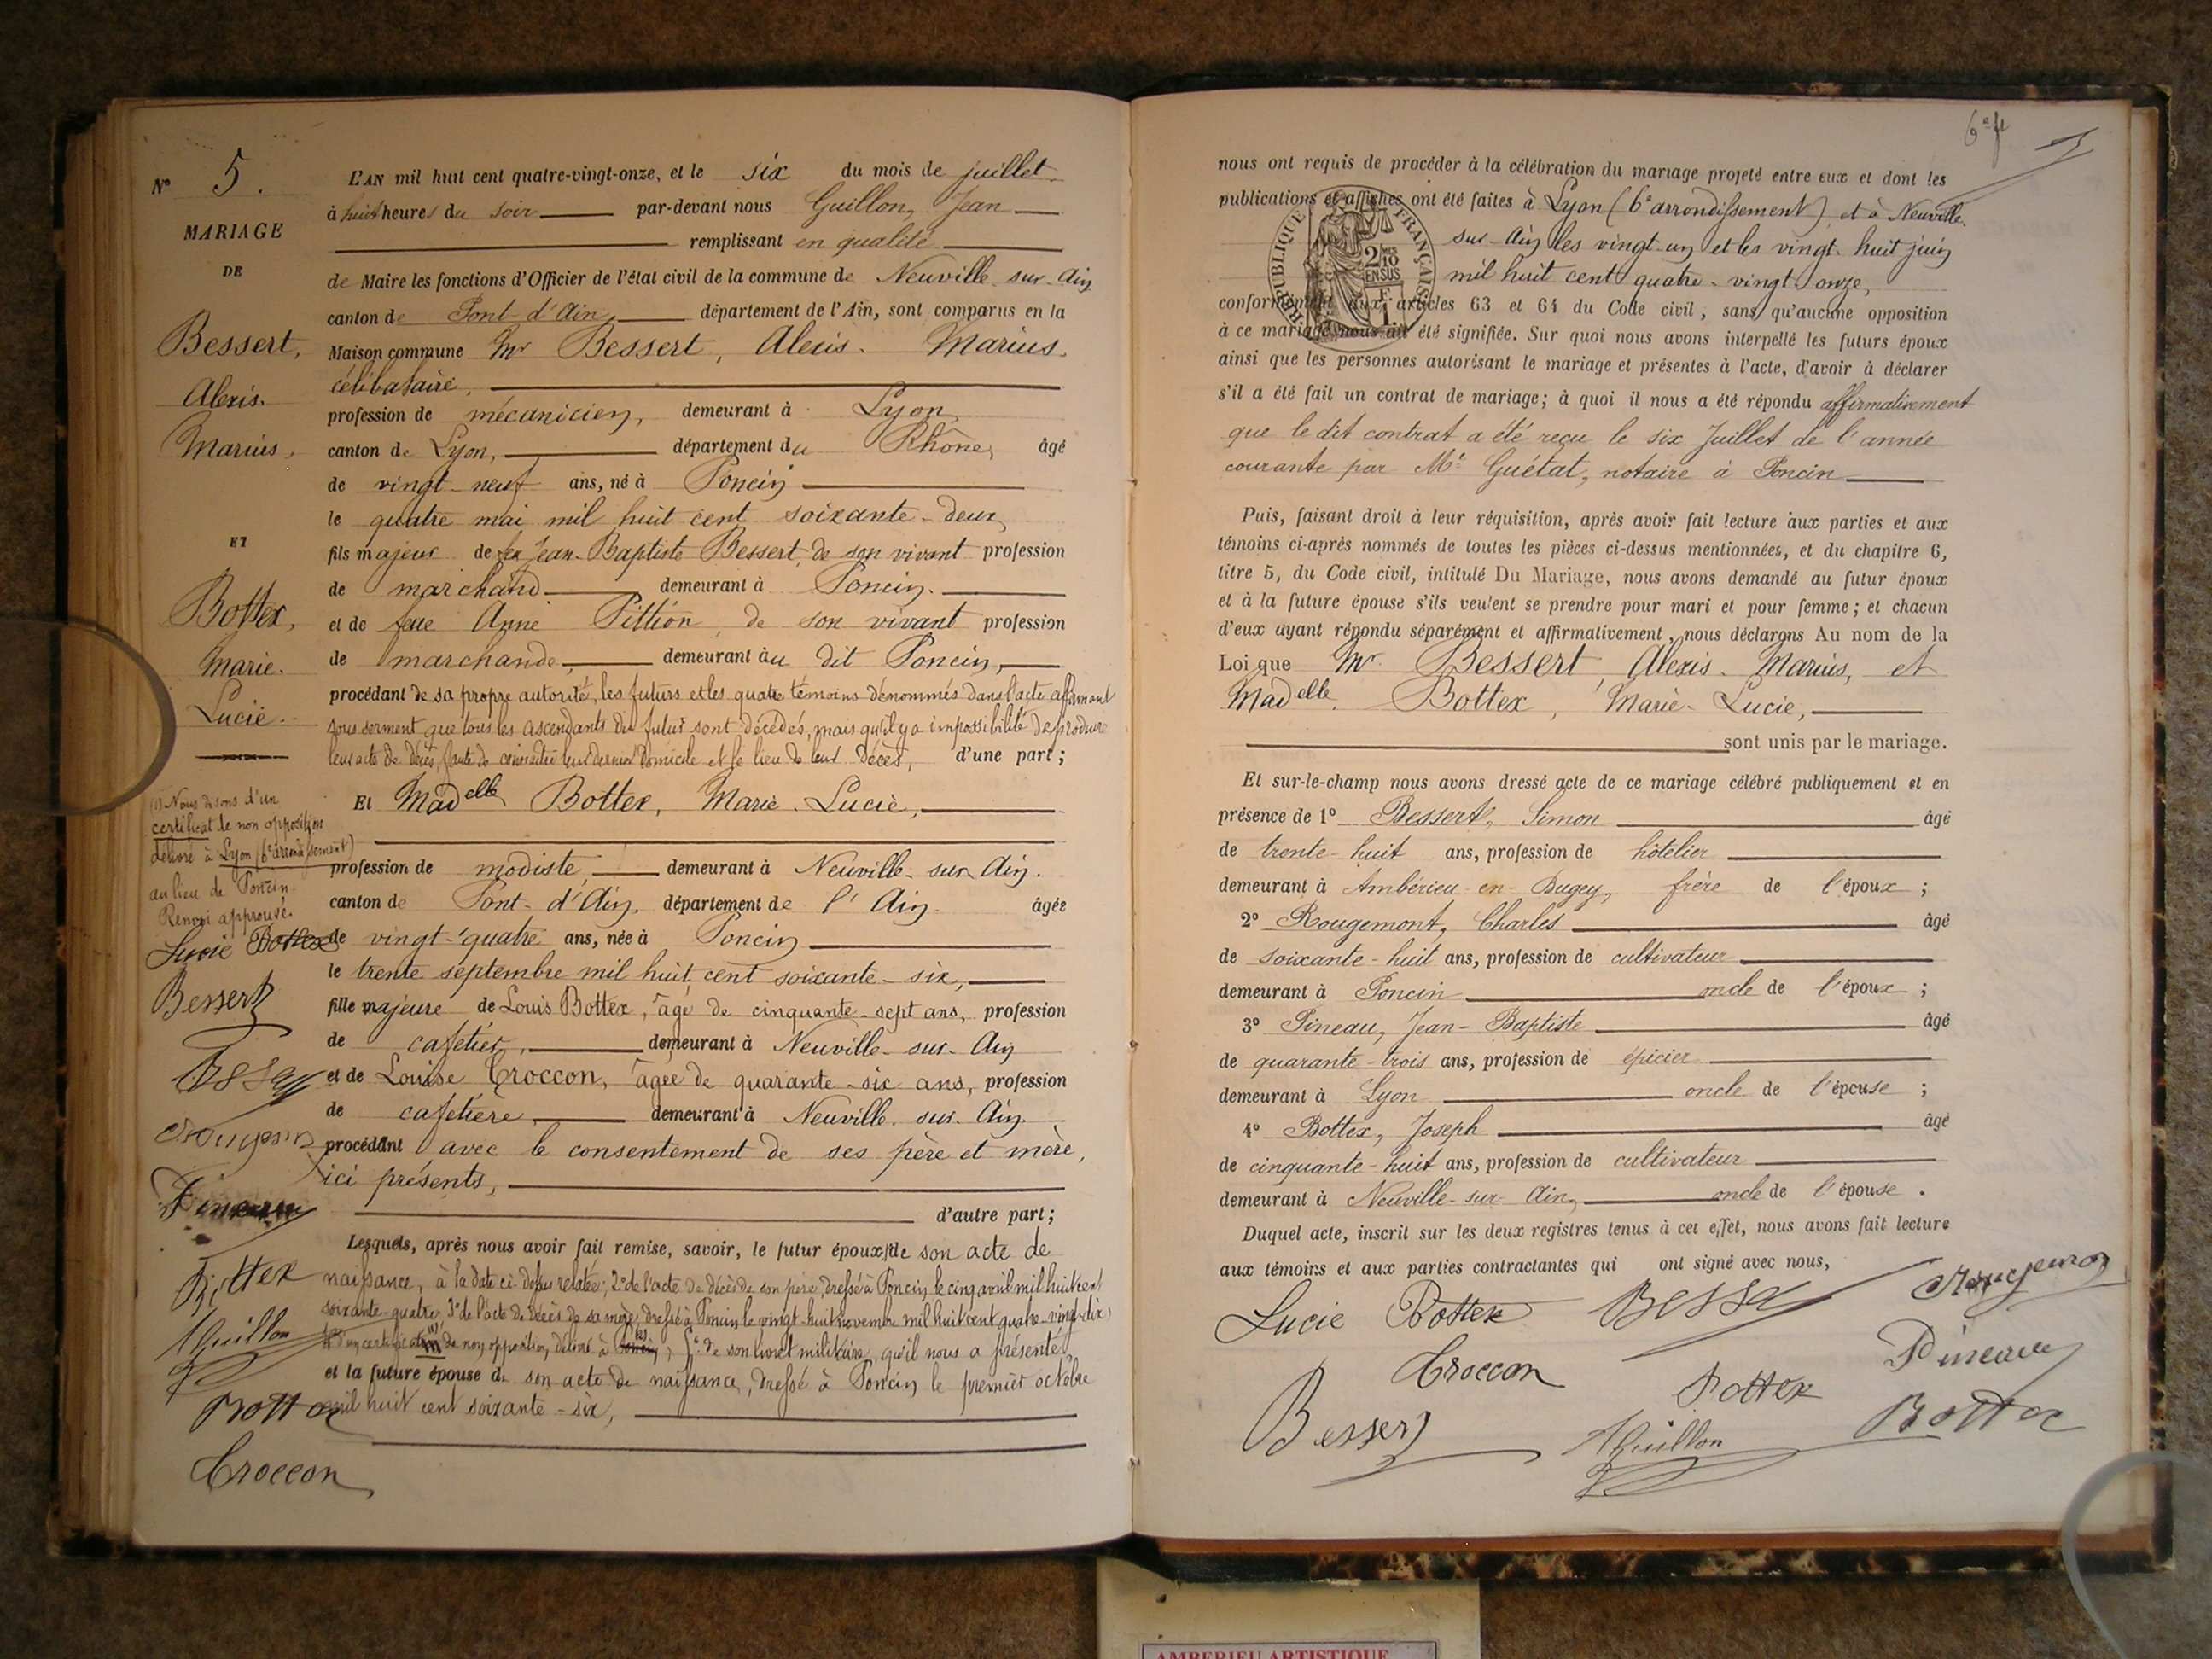 N° 5.
MARIAGE
DE
Bessert,
Alexis.
Marius,
ET
Bottex,
Marie.
Lucie.
(1) Nous disons d'un
certificat de non opposition
délivré à Lyon (6e arrondissement)
au lieu de Poncin.
Renvoi approuvé.
Lucie Bottex
Bessert
Bottex
Guillon
Croccon
L'AN mil huit cent quatre-vingt-onze, et le six du mois de juillet
à huit heures du soir par-devant nous Guillon, Jean
remplissant en qualité
de Maire les fonctions d'Officier de l'état civil de la commune de Neuville-sur-Ain
canton de Pont-d'Ain, département de l'Ain, sont comparus en la
Maison commune Mr Bessert, Alexis. Marius,
célibataire,
profession de mécanicien, demeurant à Lyon
canton de Lyon, département du Rhône, âgé
de vingt-neuf ans, né à Poncin
le quatre mai mil huit cent soixante-deux,
fils majeur de feu Jean-Baptiste Bessert, de son vivant profession
de marchand demeurant à Poncin.
et de feue Anne Pittion, de son vivant profession
de marchande, demeurant au dit Poncin,
procédant de sa propre autorité, les futurs et les quatre témoins dénommés dans l'acte affirmant
sous serment que tous les ascendants du futur sont décédés, mais qu'il y a impossibilité de produire
leurs acte de décès, faute de connaître leur dernier domicile et le lieu de leur décès, d'une part;
Et Madelle Bottex, Marie-Lucie,
profession de modiste, demeurant à Neuville-sur-Ain.
canton de Pont-d'Ain, département de l'Ain. âgée
de vingt-quatre ans, née à Poncin
le trente septembre mil huit cent soixante-six,
fille majeure de Louis Bottex, âgé de cinquante-sept ans, profession
de cafetier, demeurant à Neuville-sur-Ain
et de Louise Croccon, âgée de quarante-six ans, profession
de cafetière, demeurant à Neuville-sur-Ain.
procédant avec le consentement de ses père et mère,
ici présents,
d'autre part;
Lesquels, après nous avoir fait remise, savoir, le futur époux, 1° de son acte de
naissance, à la date ci-dessus relatée; 2° de l'acte de décès de son père, dressé à Poncin le cinq avril mil huit cent
soixante-quatre, 3° de l'acte de décès de sa mère, dressé à Poncin le vingt-huit novembre mil huit cent quatre-vingt-dix,
4° d'un certificat (1) de non opposition délivré à Poncin, 5° de son livret militaire, qu'il nous a présenté,
et la future épouse de son acte de naissance, dressé à Poncin le premier octobre
mil huit cent soixante-six,
nous ont requis de procéder à la célébration du mariage projeté entre eux et dont les
publications et affiches ont été faites à Lyon (6e arrondissement) et à Neuville-
sur-Ain les vingt-un et les vingt-huit juin
mil huit cent quatre-vingt-onze,
conformément aux articles 63 et 64 du Code civil, sans qu'aucune opposition
à ce mariage nous ait été signifiée. Sur quoi nous avons interpellé les futurs époux
ainsi que les personnes autorisant le mariage et présentes à l'acte, d'avoir à déclarer
s'il a été fait un contrat de mariage; à quoi il nous a été répondu affirmativement
que le dit contrat a été reçu le six Juillet de l'année
courante par Me Guétat, notaire à Poncin
RÉPUBLIQUE FRANÇAISE
2/10
EN SUS
Puis, faisant droit à leur réquisition, après avoir fait lecture aux parties et aux
témoins ci-après nommés de toutes les pièces ci-dessus mentionnées, et du chapitre 6,
titre 5, du Code civil, intitulé Du Mariage, nous avons demandé au futur époux
et à la future épouse s'ils veulent se prendre pour mari et pour femme; et chacun
d'eux ayant répondu séparément et affirmativement, nous déclarons Au nom de la
Loi que Mr. Bessert, Alexis. Marius, et
Madelle. Bottex, Marie-Lucie,
sont unis par le mariage.
Et sur-le-champ nous avons dressé acte de ce mariage célébré publiquement et en
présence de 1° Bessert, Simon âgé
de trente-huit ans, profession de hôtelier
demeurant à Ambérieu-en-Bugey, frère de l'époux;
2° Rougemont, Charles âgé
de soixante-huit ans, profession de cultivateur
demeurant à Poncin oncle de l'époux;
3° Pineau, Jean-Baptiste âgé
de quarante-trois ans, profession de épicier
demeurant à Lyon oncle de l'épouse;
4° Bottex, Joseph âgé
de cinquante-huit ans, profession de cultivateur
demeurant à Neuville-sur-Ain, oncle de l'épouse.
Duquel acte, inscrit sur les deux registres tenus à cet effet, nous avons fait lecture
aux témoins et aux parties contractantes qui ont signé avec nous,
Lucie Bottex Rougemon
Croccon Bottex Pineau
Bessert Guillon Bottex
AMBERIEU ARTISTIQUE